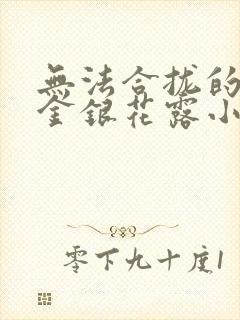 無法合拢的
金銀花露小
零下九十度1